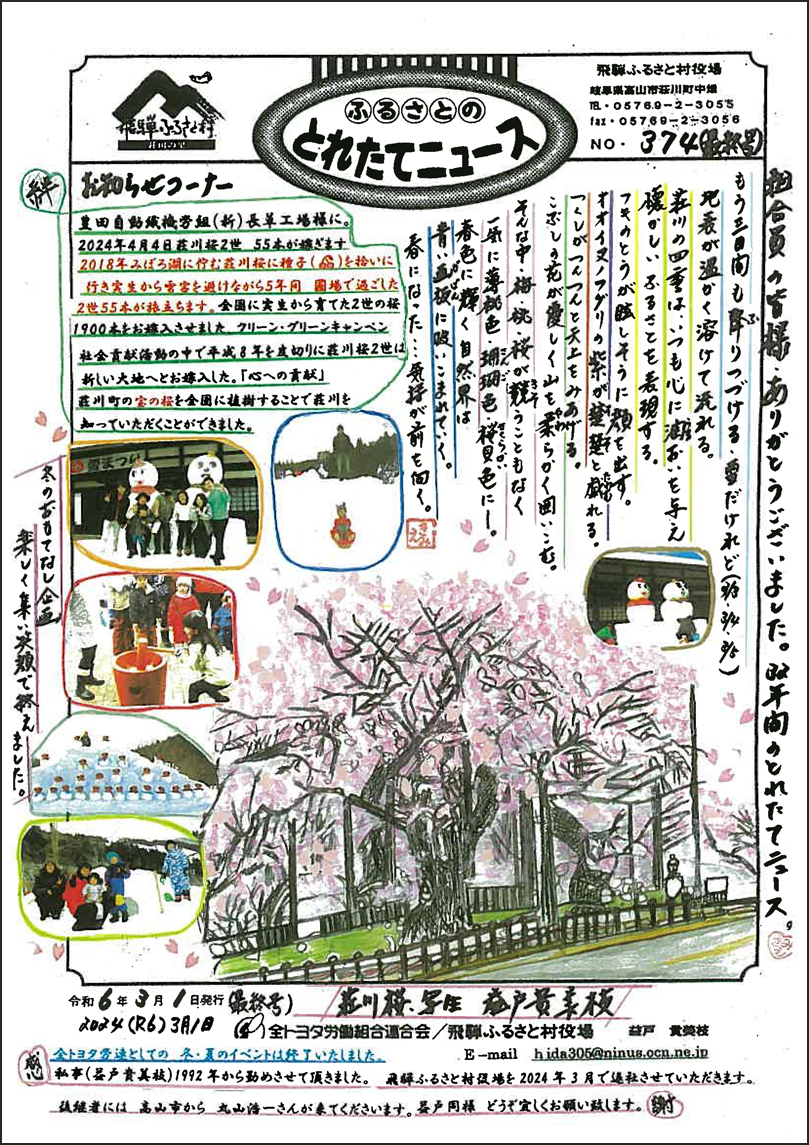 飛騨ふるさと村
荘川の里
ふるさとの
とれたてニュース
飛騨ふるさと村役場
岐阜県高山市荘川町中畑
TEL・05769-2-3055
fax・05769-2-3056
NO・374(最終号)
組合員の皆様・ありがとうございました。32年間のとれたてニュース。
絆
お知らせコーナー
豊田自動織機労組(新)長草工場様に。
2024年4月4日荘川桜2世 55本が嫁ぎます
2018年みぼろ湖に佇む荘川桜に種子()を拾いに
行き実生から雪害を避けながら5年間 圃場で過ごした
2世55本が旅立ちます。全国に実生から育てた2世の桜
1900本をお嫁入させました、クリーン・グリーンキャンペン
社会貢献活動の中で平成8年を皮切りに荘川桜2世は
新しい大地へとお嫁入した。「心への貢献」
荘川町の宝の桜を全国に植樹することで荘川を
知っていただくことができました。
もう三日間も降りつづける・雪だけれど(3/3・3/4・3/5)
地表が温かく溶けて流れる。
荘川の四季は、いつも心に潤おいを与え
懐かしいふるさとを表現する。
フキのとうが眩しそうに顔を出す。
オオイヌノフグリの紫が楚楚と戯れる。
つくしがつんつんと天上をみあげる。
こぶしの花が優しく山を柔らかく囲いこむ。
そんな中・梅・桃・桜が競うこともなく
一気に薄桃色・珊瑚色・桜貝色に…。
春色に輝く自然界は
青い画板に吸いこまれていく。
春になった…気持が前を向く。
雪まつり
冬のおもてなし企画
楽しく集い笑顔で終えました。
令和6年3月1日発行(最終号)
荘川桜・写生 益戸貴美枝
2024(R6)3月1日
全トヨタ労働組合連合会/飛騨ふるさと村役場 益戸 貴美枝
全トヨタ労連としての 冬・夏のイベントは終了いたしました。
E-mail hida305@ninus.ocn.ne.jp
感
私事(益戸貴美枝)1992年から勤めさせて頂きました。 飛騨ふるさと村役場を2024年3月で退社させていただきます。
後継者には 高山市から 丸山浩一さんが来てくださいます。益戸同様 どうぞ宜しくお願い致します。
謝